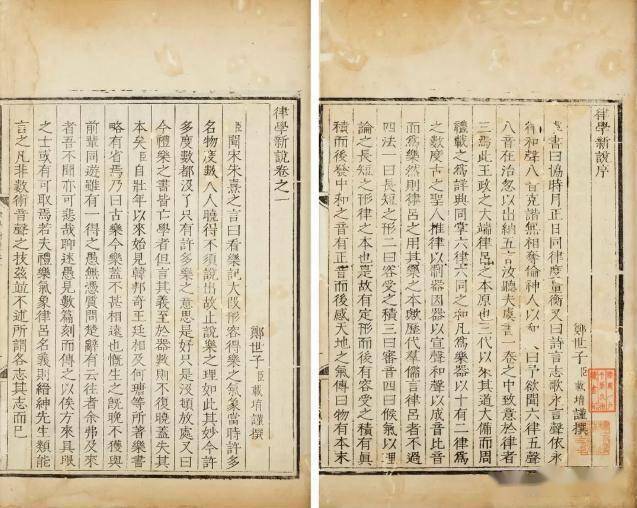 律學新說序
鄭世子臣載堉謹撰
書曰協時月正日同律度量衡又曰詩言志歌永言聲依永
律和聲八音克諧無相奪倫神人以和曰予欲聞六律五聲
八音在治忽以出納五言汝聽夫虞書一卷之中致意於律者
三焉此王政之大端律呂之本原也三代以來其道大備而周
禮載之為詳典同掌六律六同之和凡為樂器以十有二律為
之數度古之聖人推律以制器因器以宣聲和聲以成音比音
而為樂然則律呂之用其樂之本歟歷代羣儒言律呂者不過
四法一曰長短之形二曰容受之積三曰審音四曰候氣以理
論之長短之形律之本也是故有定形而後有容受之積有真
積而後發中和之音有正音而後感天地之氣傳曰物有本末
律學新說卷之一
鄭世子臣載堉謹撰
臣聞宋朱熹之言曰看樂記大段形容得樂之氣象當時許多
名物度數人人曉得不須說出故止說樂之理如此其妙今許
多度數都沒了只有許多樂之意思是好只是沒頓放處又曰
今禮樂之書皆亡學者但言其義至於器數則不復曉蓋失其
本矣臣自壯年以來始見韓邦奇王廷相何瑭等所著樂書
略有省焉乃曰古樂今樂蓋不甚相遠也慨生之既晚不獲與
前輩同遊雖有一得之愚無憑質問楚辭有云往者余弗及來
者吾不聞亦可悲哉聊述愚見數篇刻而傳之以俟方來具眼
之士或有可取焉若夫禮樂氣象律呂名義則縉紳先生類能
言之凡非數術音聲之技茲並不述所謂各志其志而已